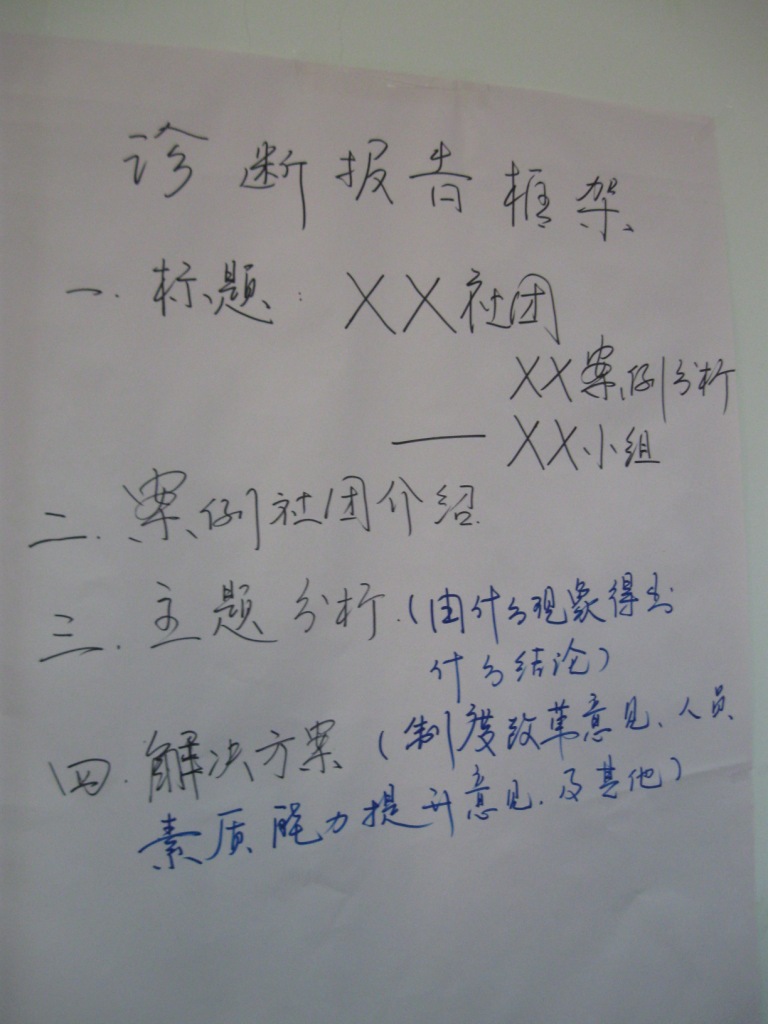 诊断报告框架
一.标题:XX社团
XX案例分析
——XX小组
二.案例社团介绍
三.主题分析.(由什么现象得到
什么结论)
四.解决方案(制度改革意见、人员
素质能力提升意见.及其他)